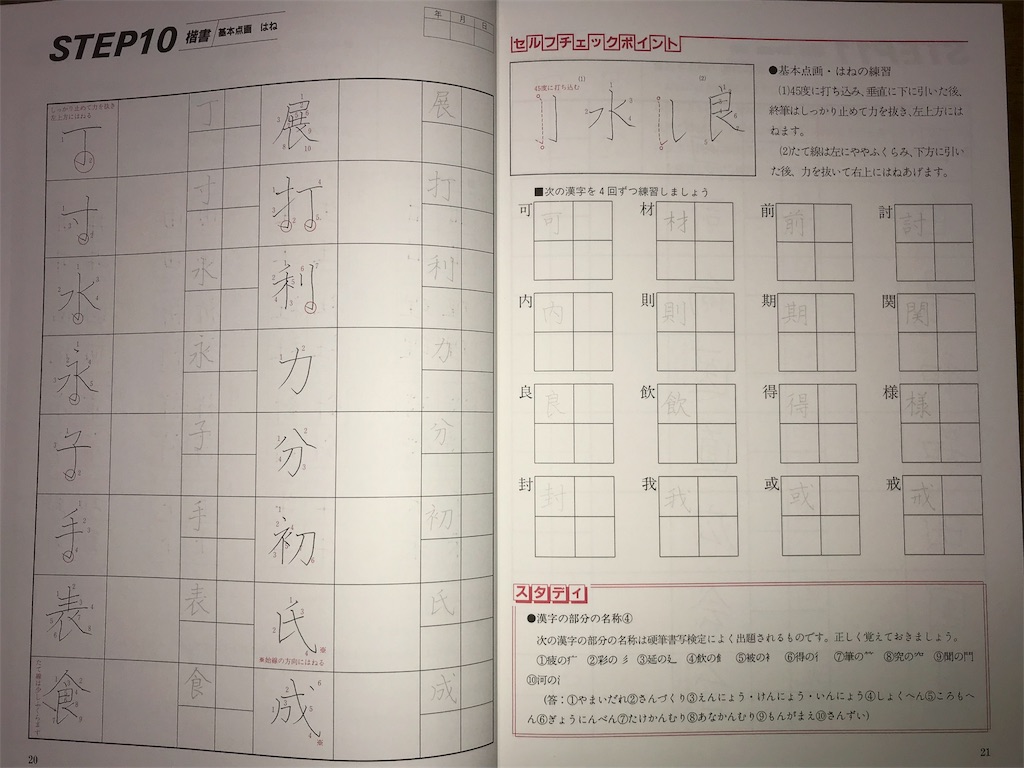 STEP10 楷書 基本点画 はね
年 月 日
しっかり止めて力を抜き
左上方にはねる
丁 丁
寸 寸
水 水
永 永
子 子
手 手
表 表
食 食
展 展
打 打
利 利
力 力
分 分
初 初
氏 氏
※始線の方向にはねる
成 成
※
20
セルフチェックポイント
(1) (2)
45度に打ち込む
水 良
●基本点画・はねの練習
(1)45度に打ち込み、垂直に下に引いた後、
終筆はしっかり止めて力を抜き、左上方には
ねます。
(2)たて線は左にややふくらみ、下方に引い
た後、力を抜いて右上にはねあげます。
■次の漢字を4回ずつ練習しましょう
可 可 材 材 前 前 討 討
内 内 則 則 期 期 関 関
良 良 飲 飲 得 得 様 様
封 封 我 我 或 或 戒 戒
スタディ
●漢字の部分の名称④
次の漢字の部分の名称は硬筆書写検定によく出題されるものです。正しく覚えておきましょう。
①疲の疒 ②彩の彡 ③延の廴 ④飲の飠 ⑤被の衤 ⑥得の彳 ⑦筆の⺮ ⑧究の穴 ⑨聞の門
⑩河の氵
(答:①やまいだれ②さんづくり③えんにょう・けんにょう・いんにょう④しょくへん⑤ころもへ
ん⑥ぎょうにんべん⑦たけかんむり⑧あなかんむり⑨もんがまえ⑩さんずい)
21